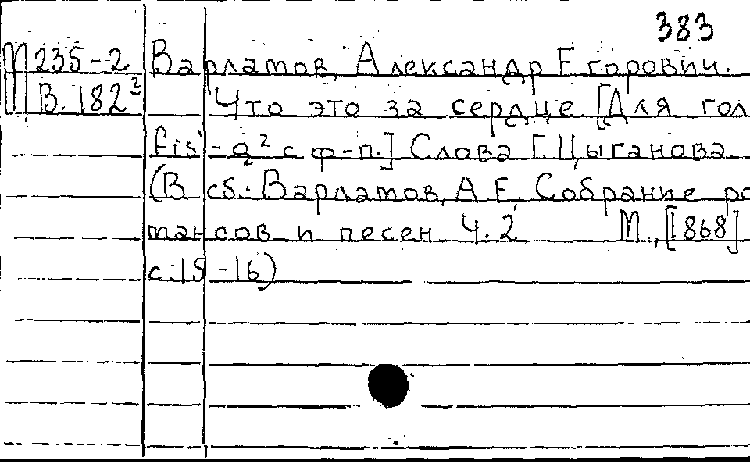 383
М 235-2 Варламов, Александр Егорович.
В. 182² Что это за сердце [Для гол
fis¹-g² с ф-п.] Слова Г. Цыганова.
(В сб.: Варламов, А.Е. Собрание ро
мансов и песен Ч. 2 М., [868]
с. 15-16)